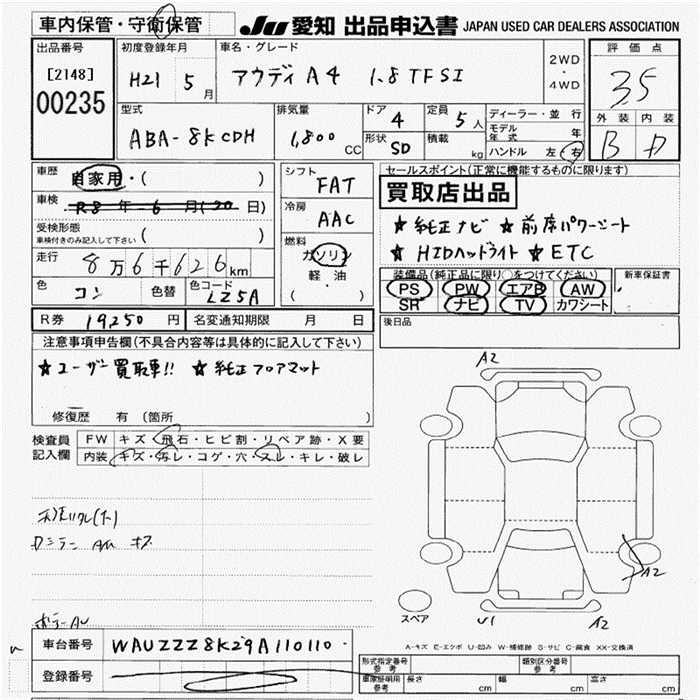 車内保管・守衛保管 JU 愛知 出品申込書 JAPAN USED CAR DEALERS ASSOCIATION
出品番号 [2148] 00235
初度登録年月 H21 5 月
車名・グレード アウディ A4 1.8 TFSI
2WD ・ 4WD
評価点 3.5
外装 内装
B D
型式 ABA-8KCDH
排気量 1,800 CC
ドア 4
形状 SD
定員 5 人
積載 kg
ディーラー・並行
モデル年式 年
ハンドル 左・右
車歴 自家用・( )
車検 R8 年 6 月 (20 日)
受検形態 車検付きのみ記入して下さい ( )
走行 8万6千626km
色 コン 色替 色コード LZ5A
シフト FAT
冷房 AAC
燃料 ガソリン
軽・油
( ・ )
セールスポイント(正常に機能するものに限ります)
買取店出品
★純正ナビ ★前席パワーシート
★HIDヘッドライト ★ETC
装備品(純正品に限り○をつけてください)
PS PW エアB AW
SR ナビ TV カワシート
新車保証書
後日品
R券 19,250 円 名変通知期限 月 日
注意事項申告欄(不具合内容等は具体的に記入して下さい)
★ユーザー買取車!! ★純正フロアマット
修復歴 有 (箇所
検査員記入欄
FW キズ・飛石・ヒビ割・リペア跡・X要
内装 キズ・汚レ・コゲ・穴・スレ・キレ・破レ
A2
A2
U1 A2
スペア
A-キズ E-エクボ U-凹み W-補修跡 S-サビ C-腐食 XX-交換済
車台番号 WAUZZZ8K29A110110
登録番号
形式指定番号 参考 類別区分番号 参考
車庫証明用 参考 長さ cm 幅 cm 高さ cm